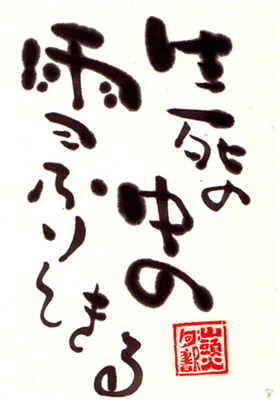 生死の
中の
雪ふりし
きる
山頭火
8